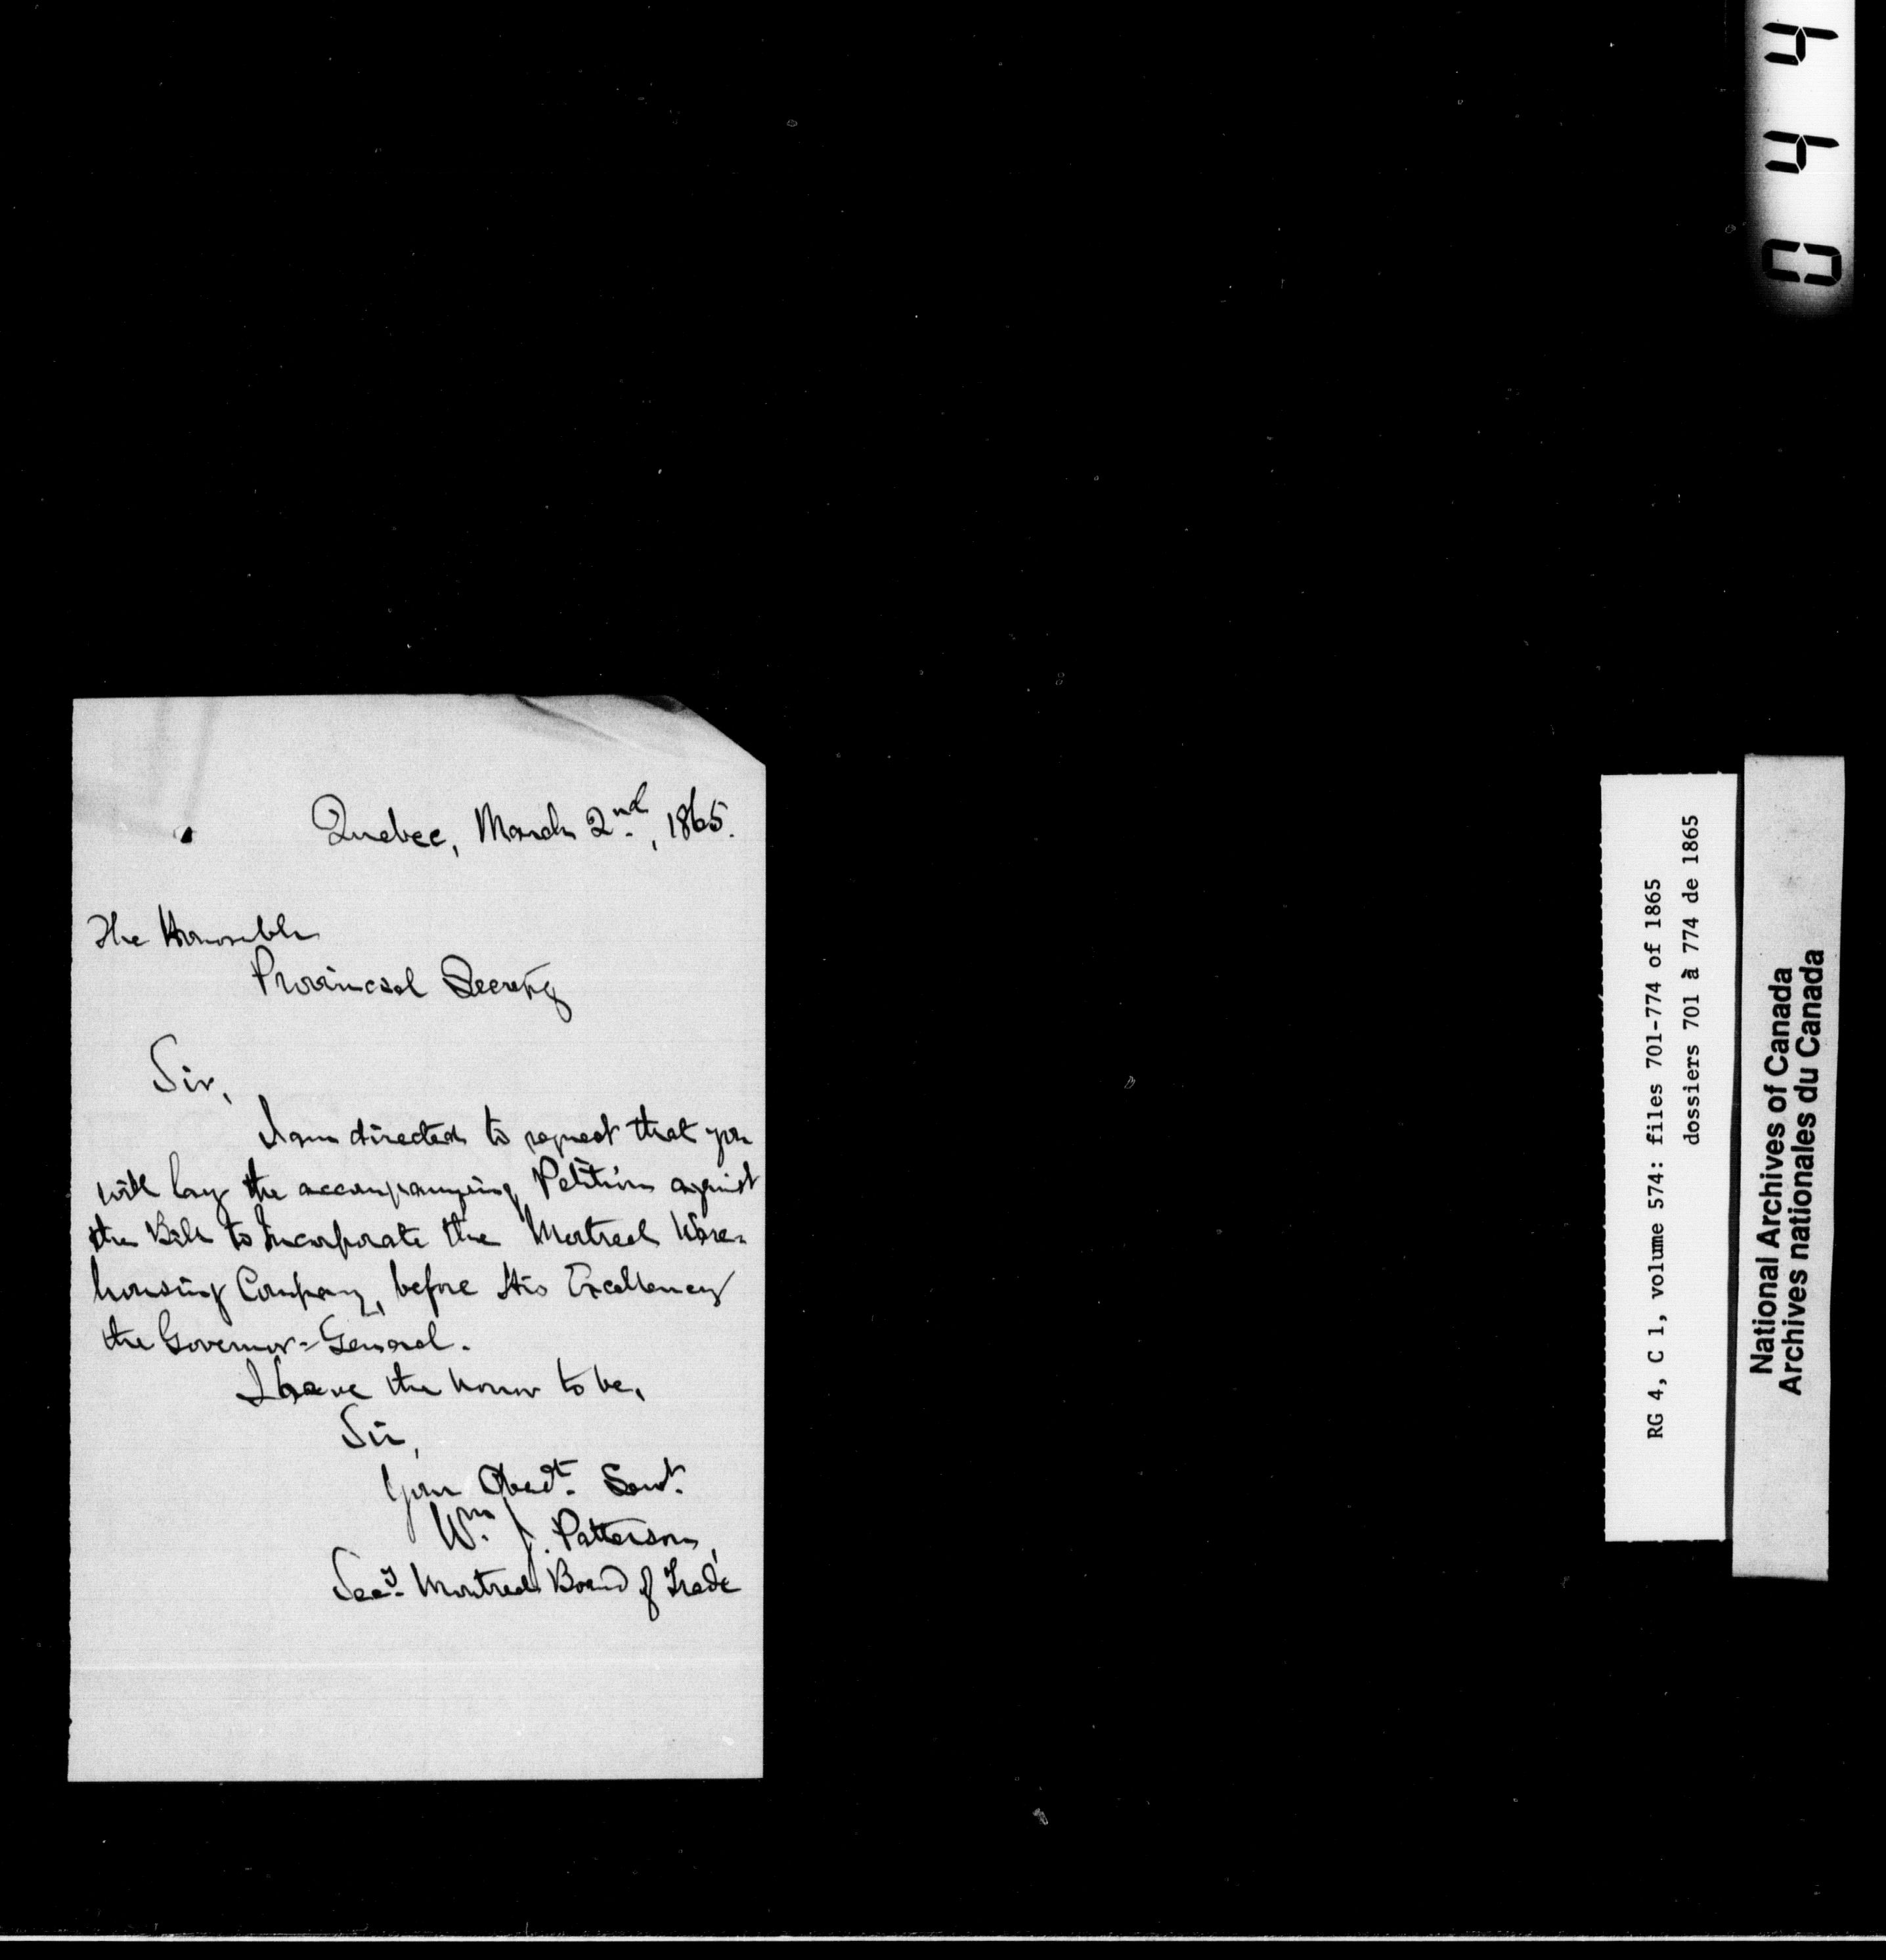 Quebec, March 2nd, 1865.
The Honorable
Provincial Secrety
Sir,
I am directed to request that you
will lay the accompanying Petition against
the Bill to Incorporate the Montreal Ware-
housing Company, before His Excellency
the Governor-General.
I have the honor to be,
Sir,
Your Obedt. Servt.
Wm. J. Patterson,
Secy. Montreal Board of Trade
0 4 4
RG 4, C 1, volume 574: files 701-774 of 1865
dossiers 701 à 774 de 1865
National Archives of Canada
Archives nationales du Canada